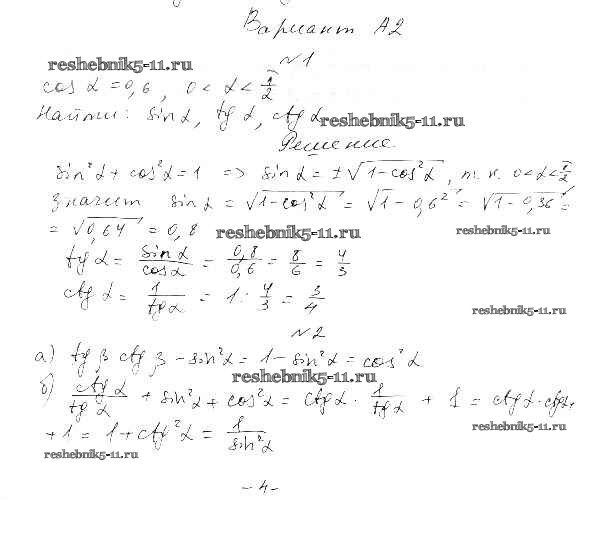 Вариант А2
reshebnik5-11.ru
№1
cos α = 0,6, 0 < α < π/2
Найти: sin α, tg α, ctg α
reshebnik5-11.ru
Решение.
sin²α + cos²α = 1 => sin α = ±√(1-cos²α), т.к. 0<α<π/2
значит sin α = √(1-cos²α) = √(1-0,6²) = √(1-0,36) =
= √0,64 = 0,8
reshebnik5-11.ru
reshebnik5-11.ru
tg α = sin α/cos α = 0,8/0,6 = 8/6 = 4/3
ctg α = 1/tg α = 1 : 4/3 = 3/4
reshebnik5-11.ru
№2
а) tg β ctg β - sin²α = 1 - sin²α = cos²α
reshebnik5-11.ru
б) ctg α/tg α + sin²α + cos²α = ctg α · 1/tg α + 1 = ctg α · ctg α +
+ 1 = 1 + ctg²α = 1/sin²α
reshebnik5-11.ru
reshebnik5-11.ru
- 4 -